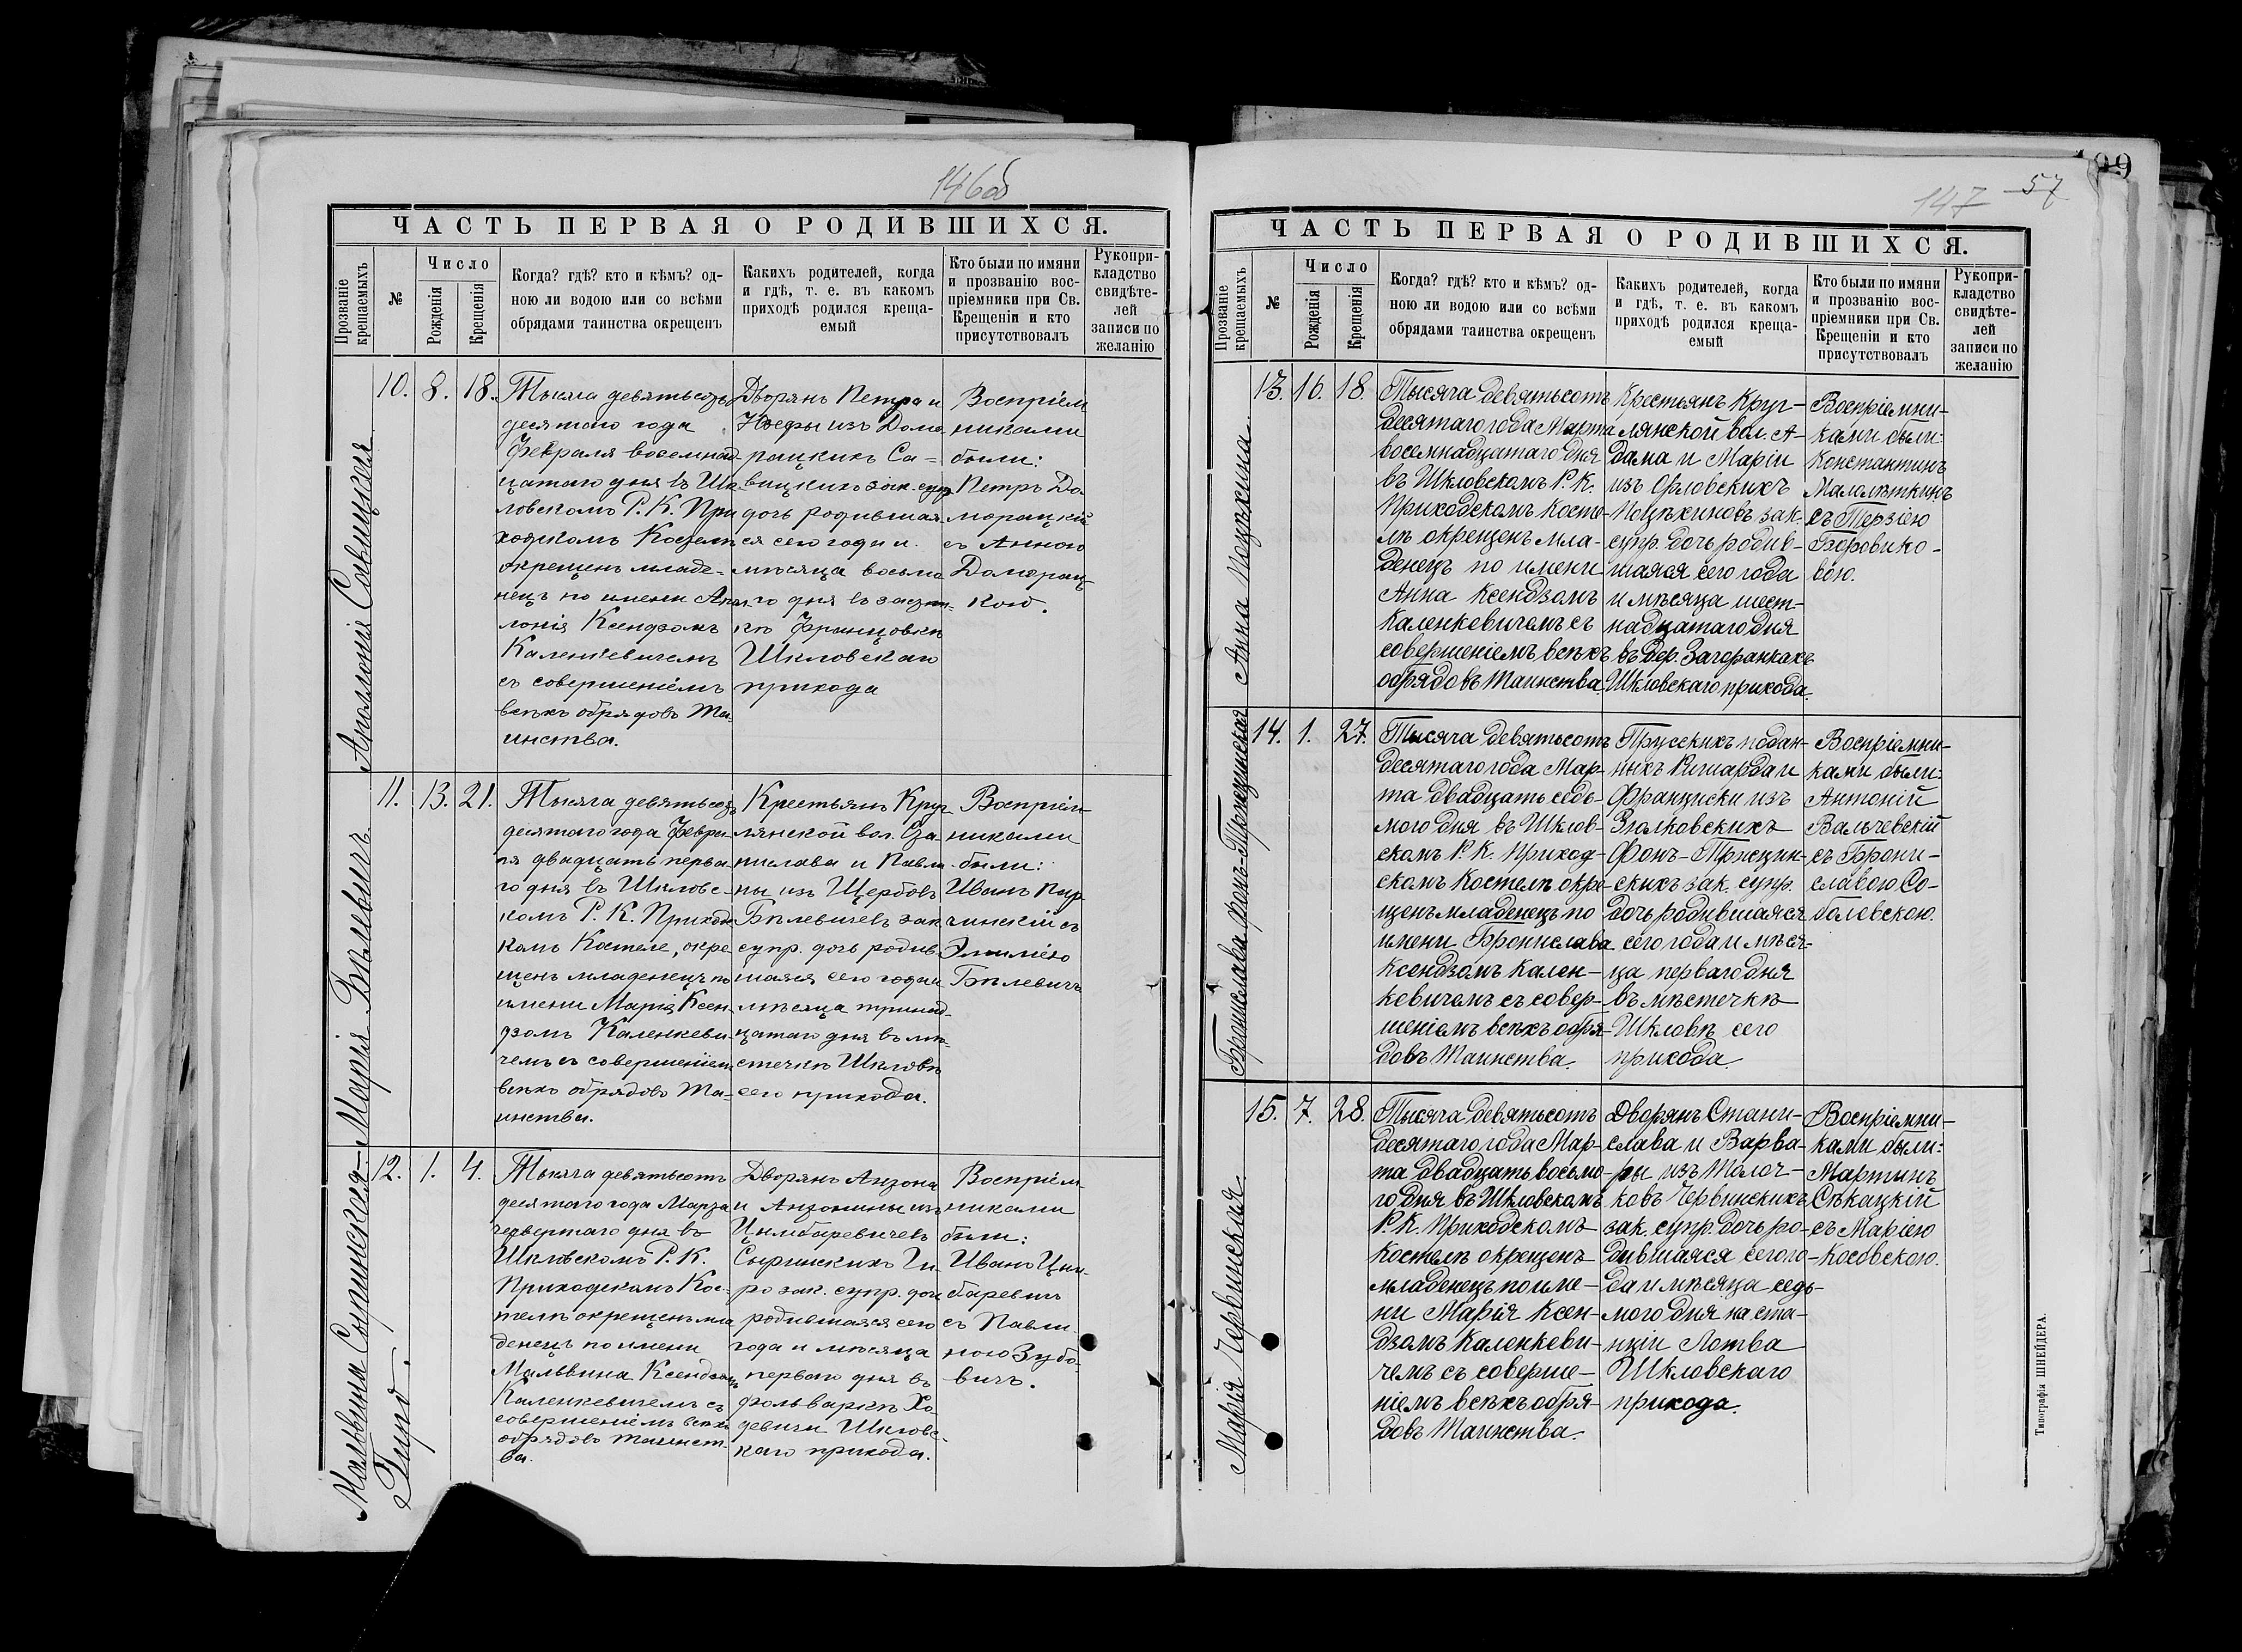 146об
ЧАСТЬ ПЕРВАЯ О РОДИВШИХСЯ.
Прозваніе крещаемыхъ
№
Число
Рожденія
Крещенія
Когда? гдѣ? кто и кѣмъ? од-
ною ли водою или со всѣми
обрядами таинства окрещенъ
Какихъ родителей, когда
и гдѣ, т. е. въ какомъ
приходѣ родился креща-
емый
Кто были по имяни
и прозванію вос-
пріемники при Св.
Крещеніи и кто
присутствовалъ
Рукопри-
кладство
свидѣте-
лей
записи по
желанію
Аполлонія Савицкая
10. 8. 18.
Тысяча девятьсотъ
десятаго года
Февраля восемнад-
цатаго дня въ Шк-
ловскомъ Р. К. При
ходскомъ Костелѣ
окрещенъ младе-
нецъ по имени Апол-
лонія Ксендзомъ
Каленкевичемъ
съ совершеніемъ
всѣхъ обрядовъ Та-
инства.
Дворянъ Петра и
Юзефы изъ Домо-
рацкихъ Са-
вицкихъ зак. супр.
дочь родившая-
ся сего года и
мѣсяца восьма
го дня въ застѣн-
кѣ Францовкѣ
Шкловскаго
прихода
Воспріем
никами
были:
Петръ До-
морацкій
съ Анною
Доморац-
кою.
Марія Бѣлевичъ
11. 13. 21.
Тысяча девятьсотъ
десятаго года Февра-
ля двадцать перва
го дня въ Шкловс-
комъ Р. К. Приходс
комъ Костеле, окре
щенъ младенецъ по
имени Марія Ксен-
дзомъ Каленкеви-
чемъ съ совершеніемъ
всѣхъ обрядовъ Та-
инства.
Крестьянъ Круг-
лянской вол.
и Павли
ны изъ Щербовъ
Бѣлевичевъ зак
супр. дочь родив-
шаяся сего года и
мѣсяца тринад-
цатаго дня въ мѣ-
стечкѣ Шкловѣ
сего прихода.
Воспріем
никами
были:
Иванъ
съ
Эмиліею
Бѣлевичъ
Мальвина Сыринская-
Гиро.
12. 1. 4.
Тысяча девятьсотъ
десятаго года Марта
четвертаго дня въ
Шкловскомъ Р. К.
Приходскомъ Кос-
телѣ окрещенъ мла
денецъ по имени
Мальвина Ксендзомъ
Каленкевичемъ съ
совершеніемъ всѣхъ
обрядовъ таинст-
ва.
Дворянъ Антона
и Антонины изъ
Цимбаревичей
Сыринскихъ Ги-
ро зак. супр. дочь
родившаяся сего
года и мѣсяца
перваго дня въ
фольваркѣ Хо-
девичи Шкловс-
каго прихода.
Воспріем
никами
были:
Иванъ Цим-
баревичъ
съ Павли-
ною Зубо-
вичъ.
147 57
99
ЧАСТЬ ПЕРВАЯ О РОДИВШИХСЯ.
Прозваніе крещаемыхъ
№
Число
Рожденія
Крещенія
Когда? гдѣ? кто и кѣмъ? од-
ною ли водою или со всѣми
обрядами таинства окрещенъ
Какихъ родителей, когда
и гдѣ, т. е. въ какомъ
приходѣ родился креща-
емый
Кто были по имяни
и прозванію вос-
пріемники при Св.
Крещеніи и кто
присутствовалъ
Рукопри-
кладство
свидѣте-
лей
записи по
желанію
Анна Поцѣхина
13. 16. 18.
Тысяча девятьсотъ
десятаго года Марта
восемнадцатаго дня
въ Шкловскомъ Р. К.
Приходскомъ Косте-
лѣ окрещенъ мла-
денецъ по имени
Анна Ксендзомъ
Каленкевичемъ съ
совершеніемъ всѣхъ
обрядовъ Таинства.
Крестьянъ Круг-
лянской вол. А-
дама и Маріи
изъ Орловскихъ
Поцѣхиновъ зак.
супр. дочь родив-
шаяся сего года
и мѣсяца шест-
надцатаго дня
въ дер. Загоранкахъ
Шкловскаго прихода.
Воспріемни-
ками были:
Константинъ
Малолѣткинъ
съ Терзіею
Боровико-
вою.
Бронислава фонъ-Трысцинская
14. 1. 27.
Тысяча девятьсотъ
десятаго года Мар-
та двадцать седь-
мого дня въ Шклов-
скомъ Р. К. Приход-
скомъ Костелѣ окре-
щенъ младенецъ по
имени Бронислава
Ксендзомъ Кален-
кевичемъ съ совер-
шеніемъ всѣхъ обря-
довъ Таинства.
Прусскихъ подан-
ныхъ Ришарда и
Франциски изъ
Зюлковскихъ
Фонъ-Трысцин-
скихъ зак. супр.
дочь родившаяся
сего года и мѣся-
ца перваго дня
въ мѣстечкѣ
Шкловѣ сего
прихода.
Воспріемни-
ками были:
Антоній
Вальчевскій
съ Брони-
славою Со-
болевскою.
Марія Червинская
15. 7. 28.
Тысяча девятьсотъ
десятаго года Мар-
та двадцать восьмо-
го дня въ Шкловскомъ
Р. К. Приходскомъ
Костелѣ окрещенъ
младенецъ по име-
ни Марія Ксен-
дзомъ Каленкеви-
чемъ съ соверше-
ніемъ всѣхъ обря-
довъ Таинства.
Дворянъ Стани-
слава и Варва-
ры изъ Толоч-
ковъ Червинскихъ
зак. супр. дочь ро-
дившаяся сего го-
да и мѣсяца седь-
мого дня на ста-
нціи Лотва
Шкловскаго
прихода.
Воспріемни-
ками были:
Мартинъ
Сѣкацкій
съ Маріею
Косовскою.
Типографія ШНЕЙДЕРА.